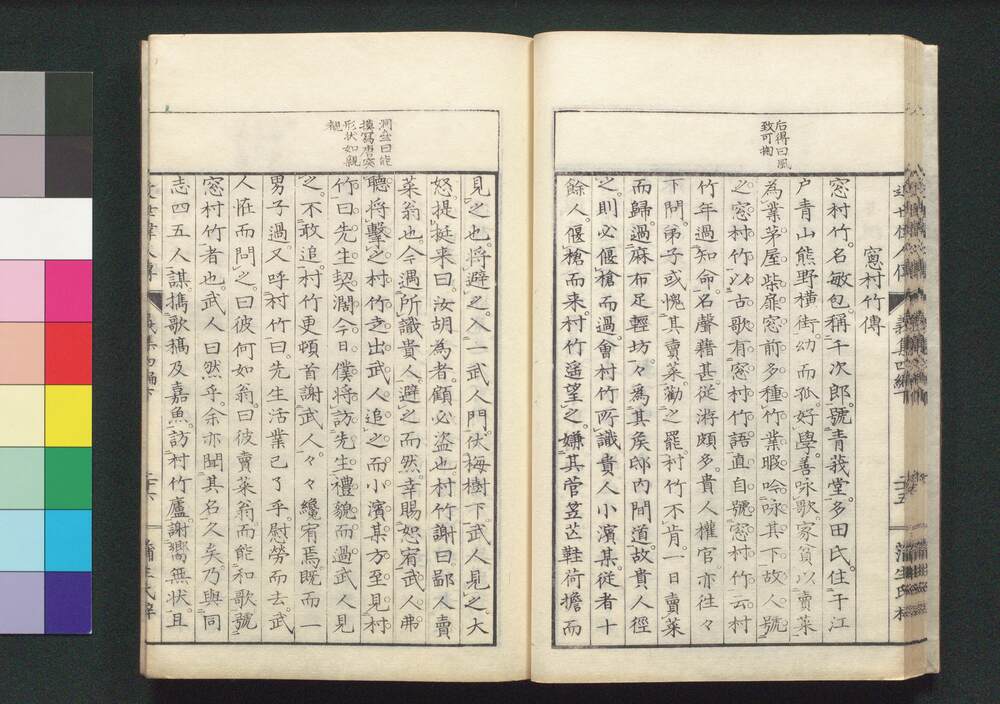 后得曰風
致可掬
窓村竹傳
窓村竹。名敏包。稱千次郎。號青莪堂。多田氏。住于江
户青山熊野横街。幼而孤。好學。善咏歌。家貧以賣菜
為業。茅屋柴扉。窓前多種竹。業暇吟咏其下。故人號
之窓村竹。以古歌有窓村竹語。直自號窓村竹云。村
竹年過知命。名聲藉甚。從游頗多。貴人權官。亦往々
下問。弟子或愧其賣菜。勸之罷。村竹不肯。一日賣菜
而歸。過麻布足輕坊。々為其矦邸内間道。故貴人徑
之。則必偃槍而過。會村竹所識貴人小濱某。從者十
餘人。偃槍而来。村竹遥望之。嫌其菅笠芒鞋荷擔而
洞盦曰能
摸寫唐突
形状如親
覩
見之也。將避之。入一武人門。伏梅樹下。武人見之。大
怒。提挺来曰。汝胡為者。顧必盗也。村竹謝曰。鄙人賣
菜翁也。今遇所識貴人。避之而然。幸賜恕宥。武人弗
聽。將擊之。村竹走出。武人追之。而小濱某方至。見村
竹曰。先生契濶。今日僕將訪先生。禮貌而過。武人見
之。不敢追。村竹更頓首謝武人。々々纔宥焉。既而一
男子過。又呼村竹曰。先生活業已了乎。慰勞而去。武
人恠而問之。曰彼何如翁。曰彼賣菜翁而能和歌。號
窓村竹者也。武人曰。然乎。余亦聞其名久矣。乃與同
志四五人謀。擕歌稿及嘉魚。訪村竹廬。謝嚮無状。且